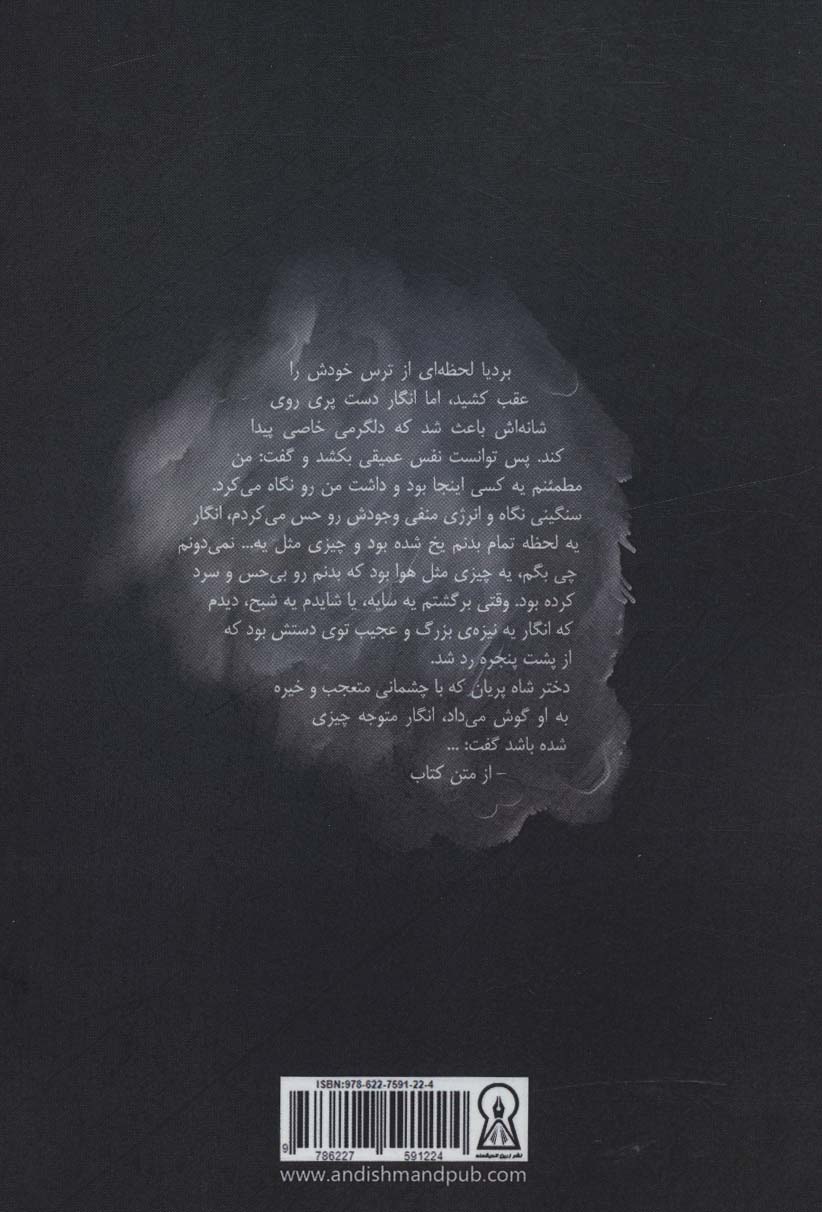 بردیا لحظه‌ای از ترس خودش را
عقب کشید، اما انگار دست پری روی
شانه‌اش باعث شد که دلگرمی خاصی پیدا
کند. پس توانست نفس عمیقی بکشد و گفت: من
مطمئنم یه کسی اینجا بود و داشت من رو نگاه می‌کرد.
سنگینی نگاه و انرژی منفی وجودش رو حس می‌کردم، انگار
یه لحظه تمام بدنم یخ شده بود و چیزی مثل یه... نمی‌دونم
چی بگم، یه چیزی مثل هوا بود که بدنم رو بی‌حس و سرد
کرده بود. وقتی برگشتم یه سایه، یا شایدم یه شبح، دیدم
که انگار یه نیزه‌ی بزرگ و عجیب توی دستش بود که
از پشت پنجره رد شد.
دختر شاه پریان که با چشمانی متعجب و خیره
به او گوش می‌داد، انگار متوجه چیزی
شده باشد گفت: ...
- از متن کتاب
ISBN:978-622-7591-22-4
9 786227 591224
www.andishmandpub.com